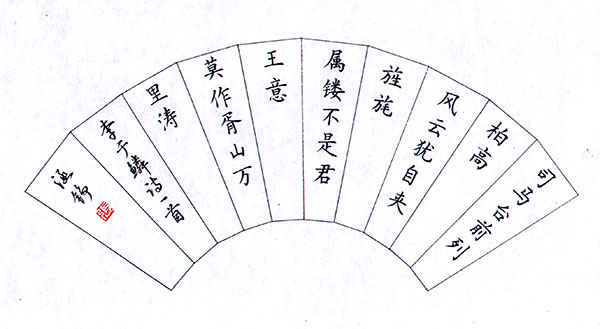 司马台前列
柏高
风云犹自夹
旌旄
属镂不是君
王意
莫作胥山万
里涛
李于鳞诗一首